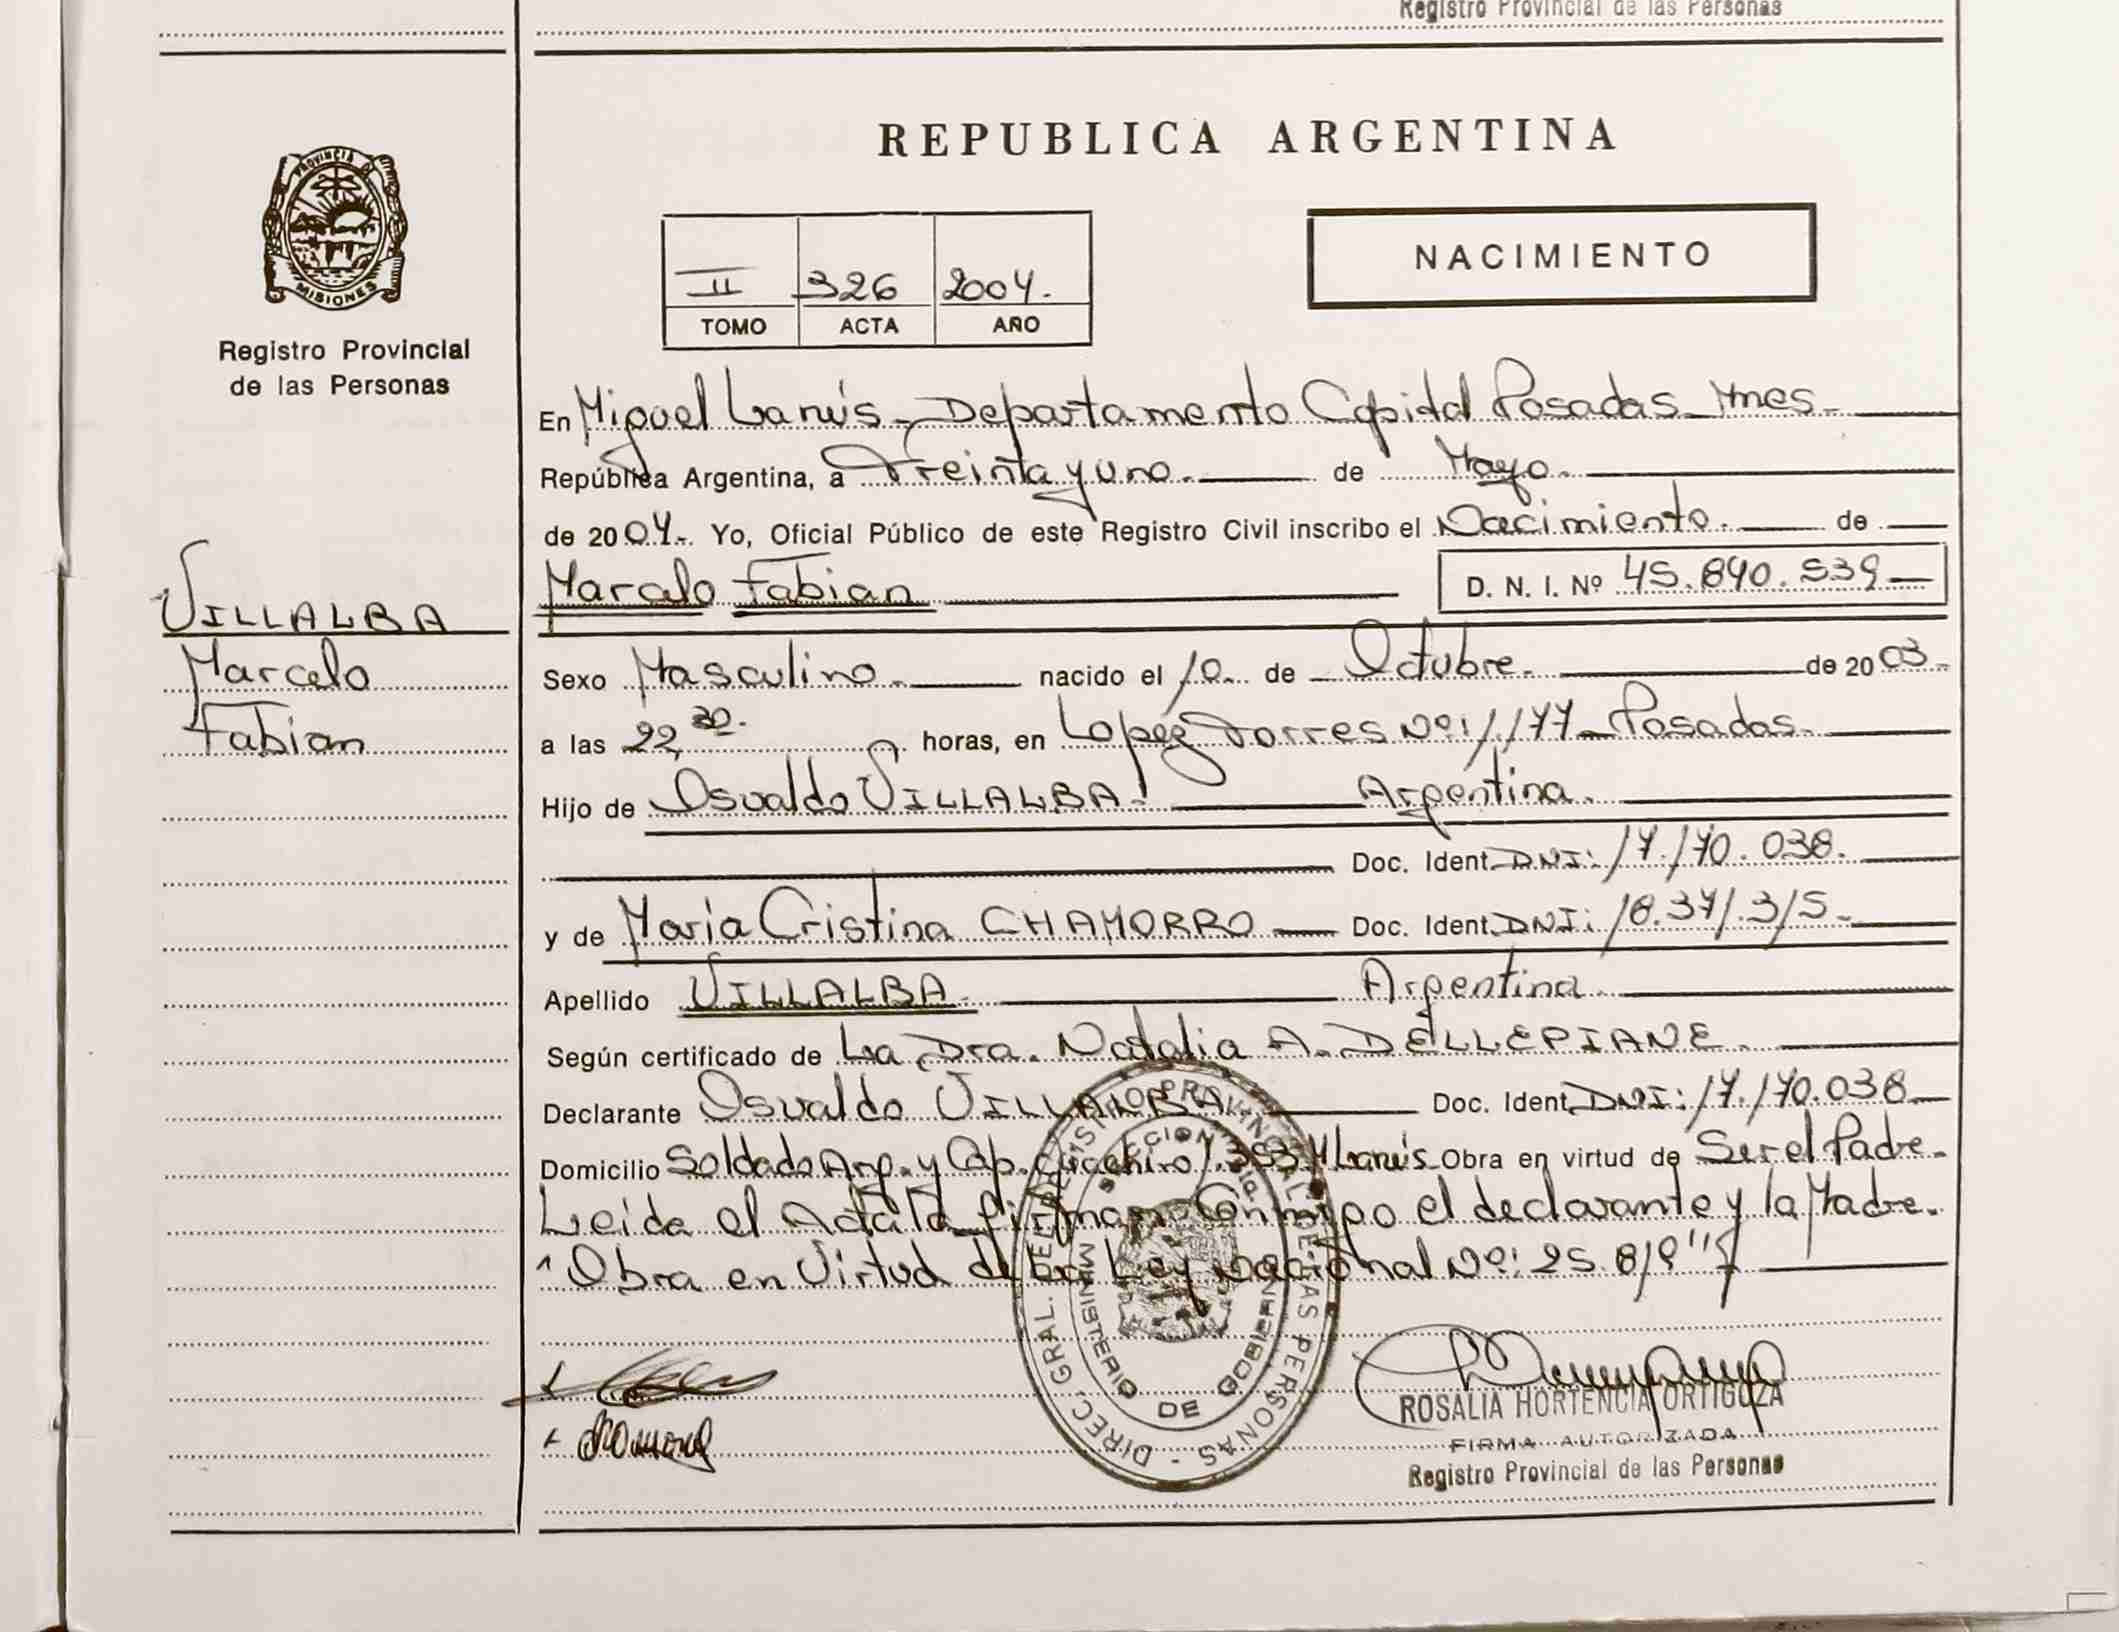 Registro Provincial de las Personas
REPUBLICA ARGENTINA
PROVINCIA DE
MISIONES
Registro Provincial
de las Personas
NACIMIENTO
II 326 2004.
TOMO ACTA AÑO
En Miguel Lanús - Departamento Capital Posadas Mnes -
República Argentina, a Treinta y uno. de Mayo.
de 2004. Yo, Oficial Público de este Registro Civil inscribo el Nacimiento. de
Marcelo Fabian D. N. I. Nº 45.840.539
VILLALBA
Marcelo
Fabian
Sexo Masculino. nacido el 10 de Octubre. de 2003.
a las 22,30. horas, en Lopéz Torres Nº: 1.177 - Posadas.
Hijo de Osvaldo VILLALBA. Argentina.
Doc. Ident. DNI: 17.170.038.
y de Maria Cristina CHAMORRO Doc. Ident. DNI: 18.371.315.
Apellido VILLALBA. Argentina.
Según certificado de La Dra. Natalia A. DELLEPIANE.
Declarante Osvaldo VILLALBA Doc. Ident. DNI: 17.170.038
Domicilio Soldado Arg. y Cap. 1.353 M Lanús Obra en virtud de Ser el Padre.
Leida el Acta la firman Conmigo el declarante y la Madre.
"Obra en Virtud de la Ley Nacional Nº: 25.819"
DIREC. GRAL. DEL REGISTRO PROVINCIAL DE LAS PERSONAS -
MINISTERIO DE GOBIERNO
ROSALIA HORTENCIA ORTIGOZA
FIRMA AUTORIZADA
Registro Provincial de las Personas